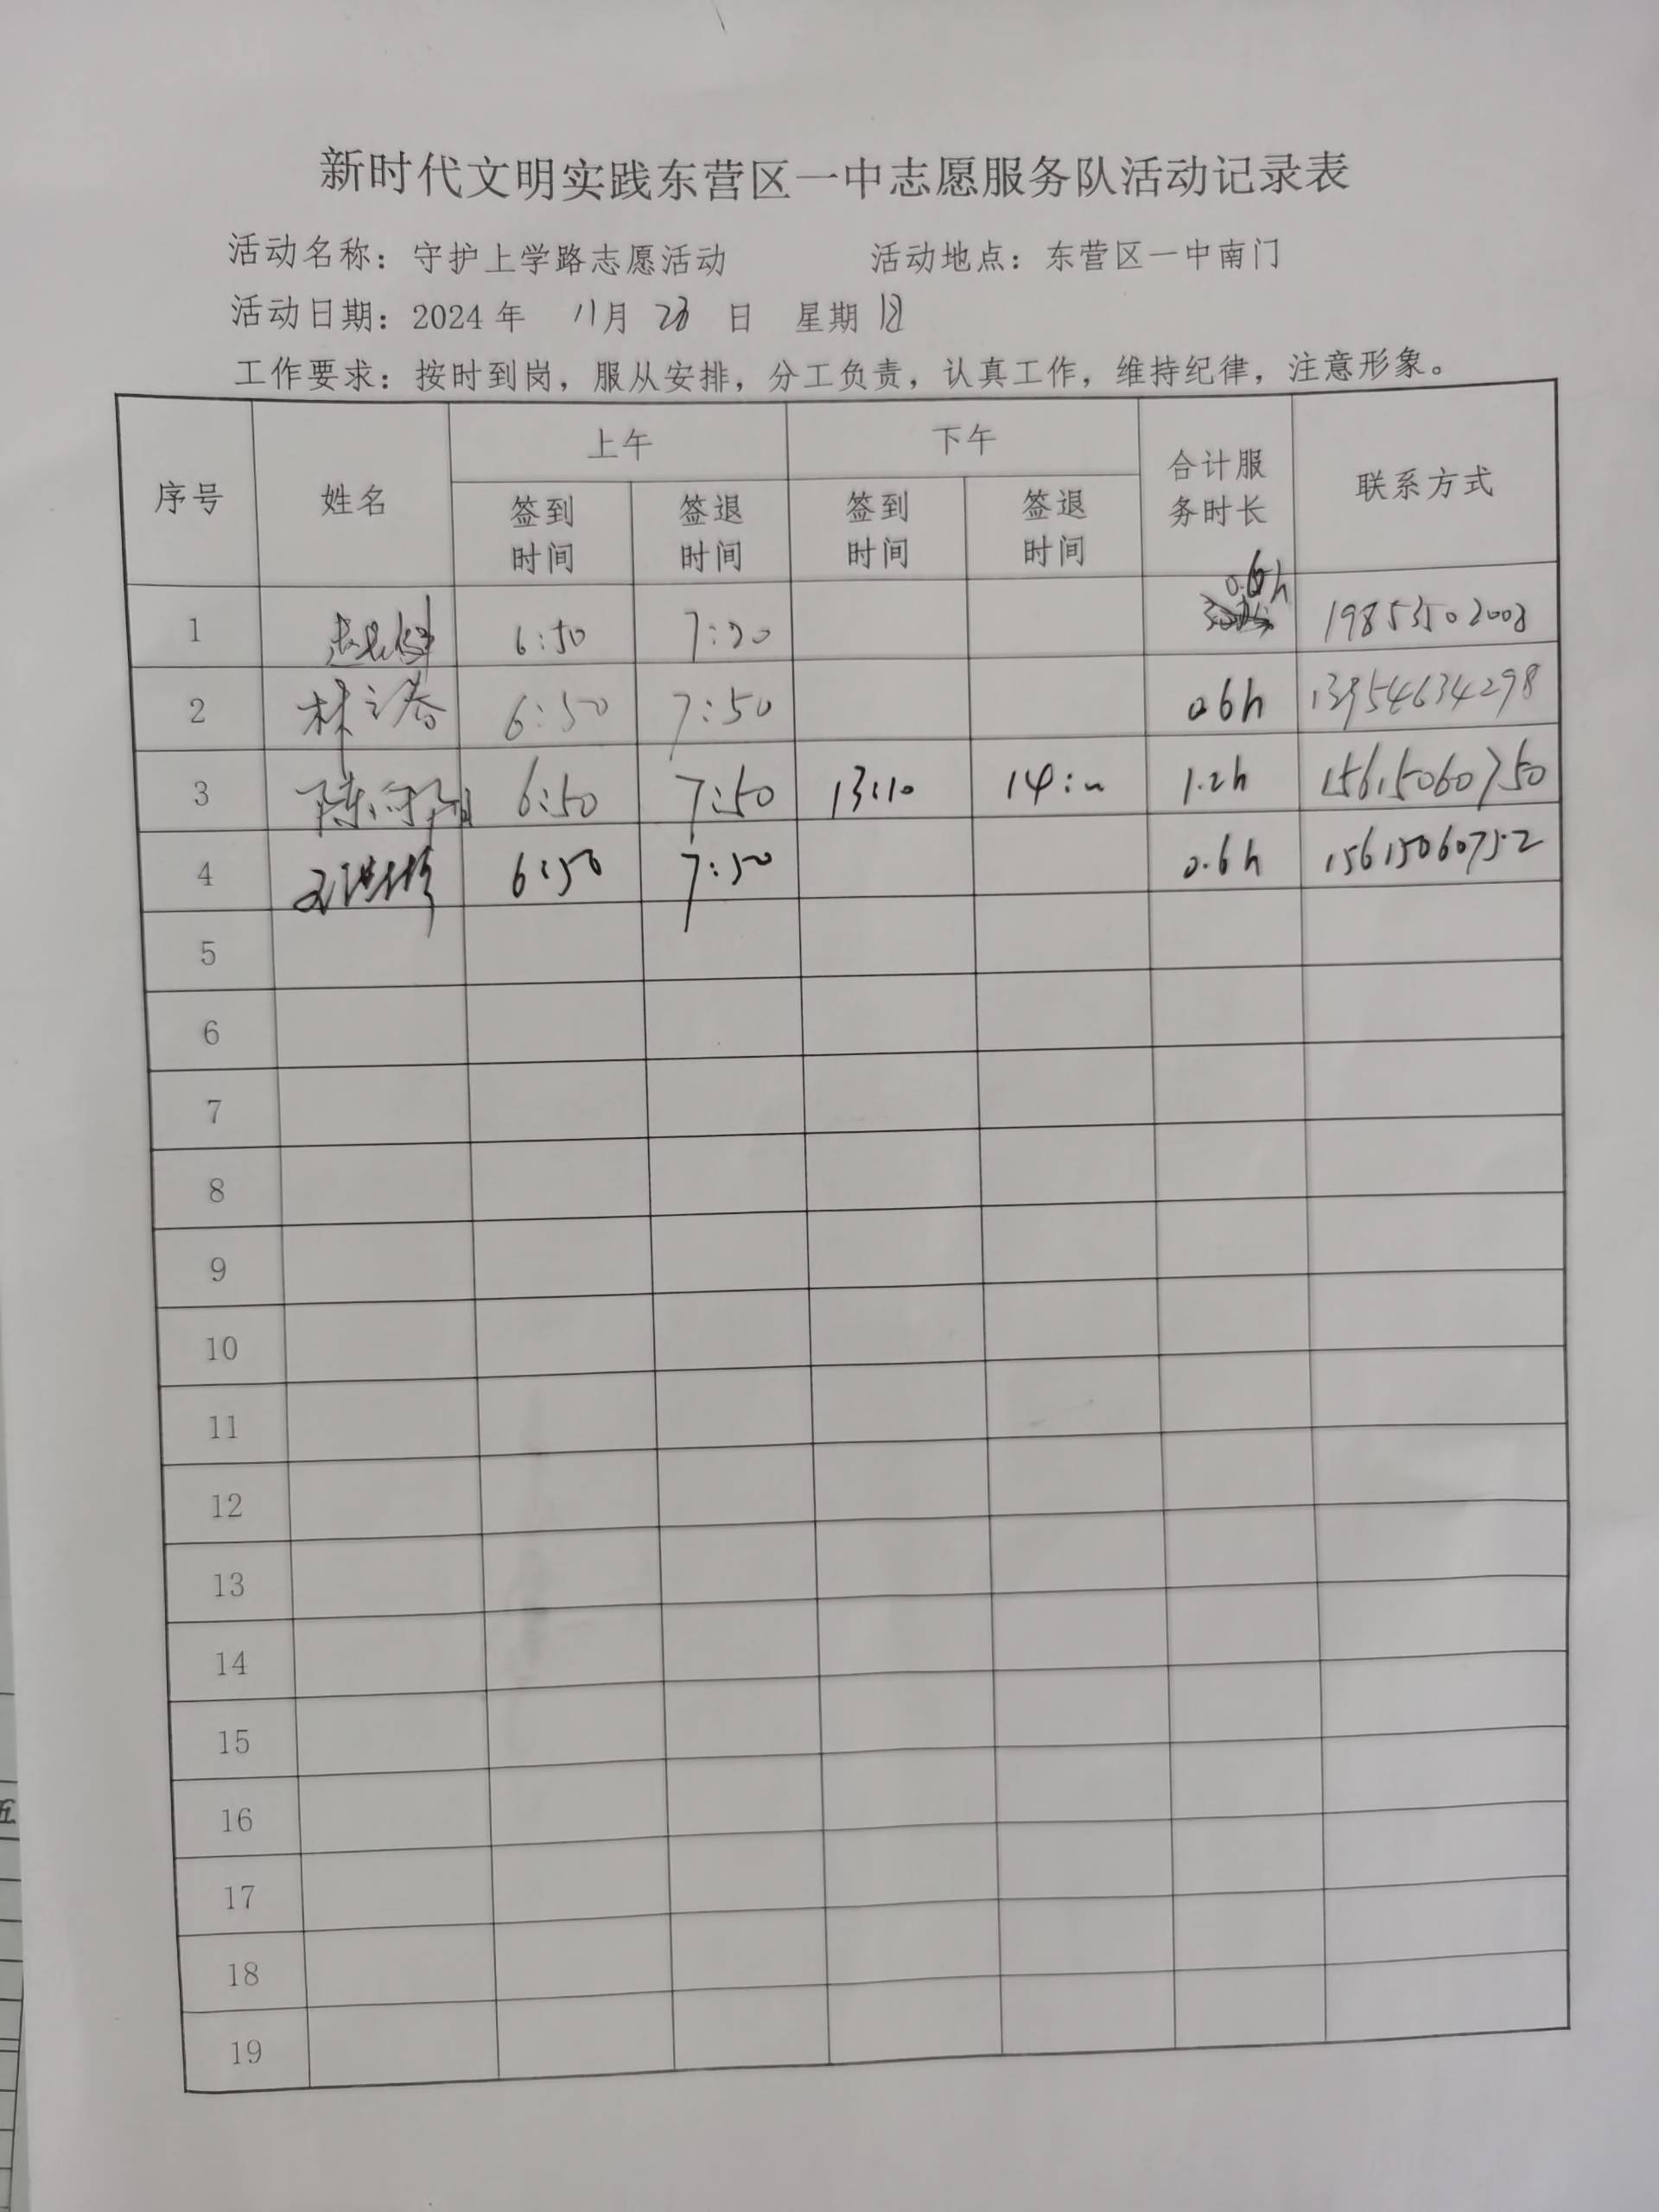 新时代文明实践东营区一中志愿服务队活动记录表
活动名称：守护上学路志愿活动 活动地点：东营区一中南门
活动日期：2024年 11月 28 日 星期四
工作要求：按时到岗，服从安排，分工负责，认真工作，维持纪律，注意形象。
序号 姓名 上午 下午 合计服务时长 联系方式
签到时间 签退时间 签到时间 签退时间
1 6:50 7:20 0.6h 19853502008
2 林 春 6:50 7:50 0.6h 13954634298
3 陈 6:50 7:50 13:10 14: 1.2h 15615060750
4 6:50 7:50 0.6h 15615060752
5
6
7
8
9
10
11
12
13
14
15
16
17
18
19
五